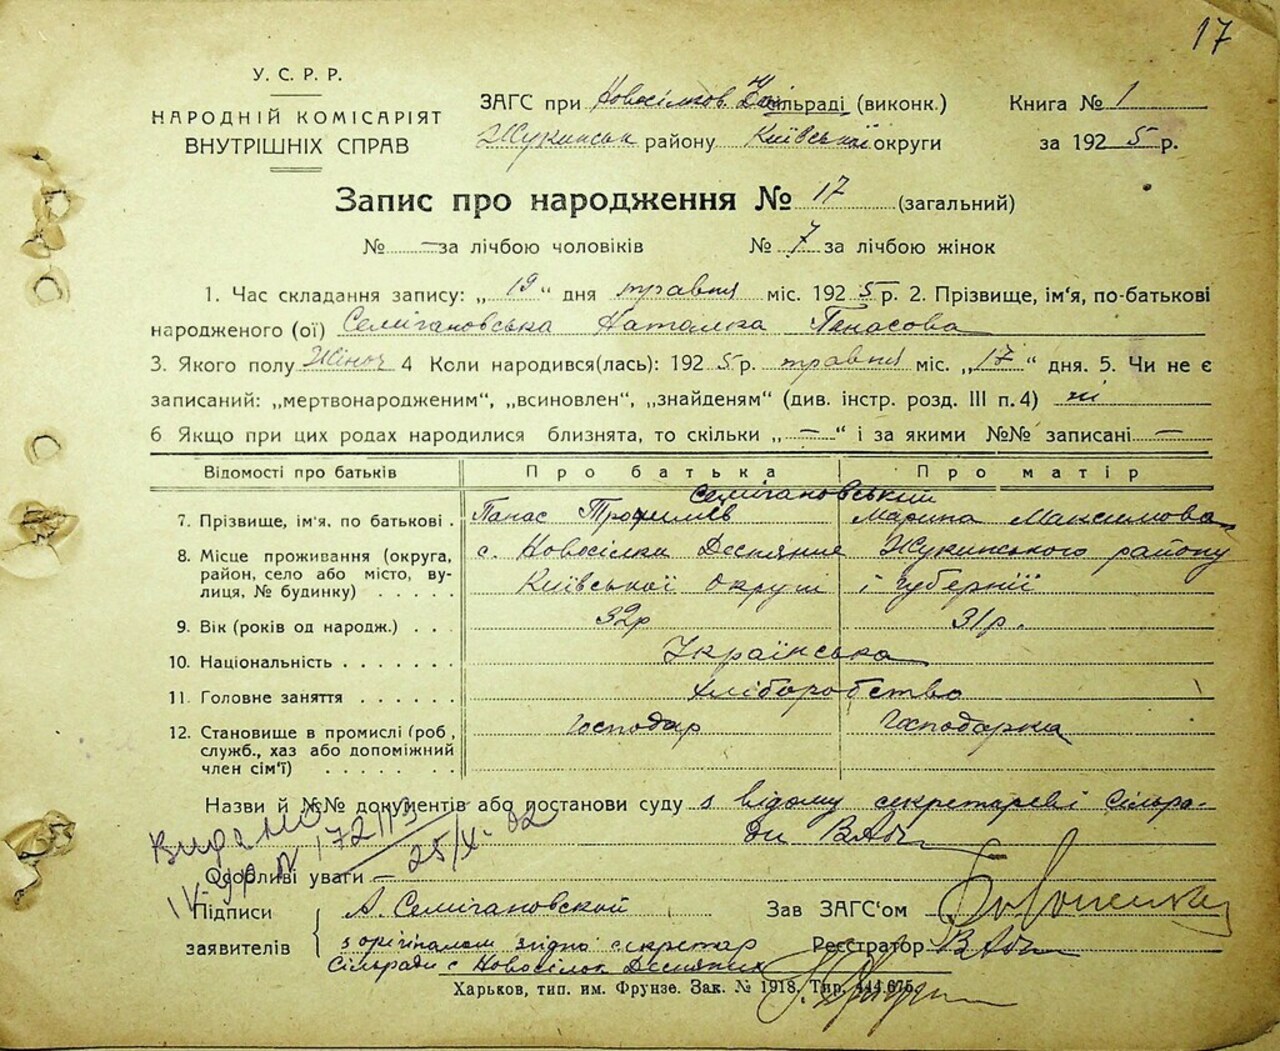 17
У. С. Р. Р.
НАРОДНІЙ КОМІСАРІЯТ
ВНУТРІШНІХ СПРАВ
ЗАГС при Новосілков сільраді (виконк.)
Жукинськ району Київської округи
Книга № 1
за 1925 р.
Запис про народження № 17 (загальний)
№ — за лічбою чоловіків № 7 за лічбою жінок
1. Час складання запису: „ 19 “ дня травня міс. 1925 р. 2. Прізвище, ім'я, по-батькові
народженого (ої) Семігановська Наталка Панасова
3. Якого полу Жіноч 4 Коли народився(лась): 1925 р. травня міс. „ 17 “ дня. 5. Чи не є
записаний: „мертвонародженим“, „всиновлен“, „знайденям“ (див. інстр. розд. III п. 4) ні
6 Якщо при цих родах народилися близнята, то скільки „ — “ і за якими №№ записані —
Відомості про батьків Про батька Про матір
Семігановський
7. Прізвище, ім'я, по батькові . Панас Трофимів Марина Максимова
8. Місце проживання (округа, с. Новосілки Деснянні Жукинського району
район, село або місто, ву-
лиця, № будинку) . . . . . Київської округи і губернії
9. Вік (років од народж.) . . . 32р 31р.
10. Національність . . . . . . . Українська
11. Головне заняття . . . . . . хліборобство
12. Становище в промислі (роб., Господар Господарка
служб., хаз або допоміжний
член сім'ї) . . . . . . .
Назви й №№ документів або постанови суду з відому секретареві Сільра-
ди
Видано
172113
25/X-
Особливі уваги —
Підписи А. Семігановской Зав ЗАГС'ом
заявителів з орігіналом згідно секретар Реєстратор
Сільради с Новосілок Деснянних
Харьков, тип. им. Фрунзе. Зак. № 1918. Тир. 444.675.